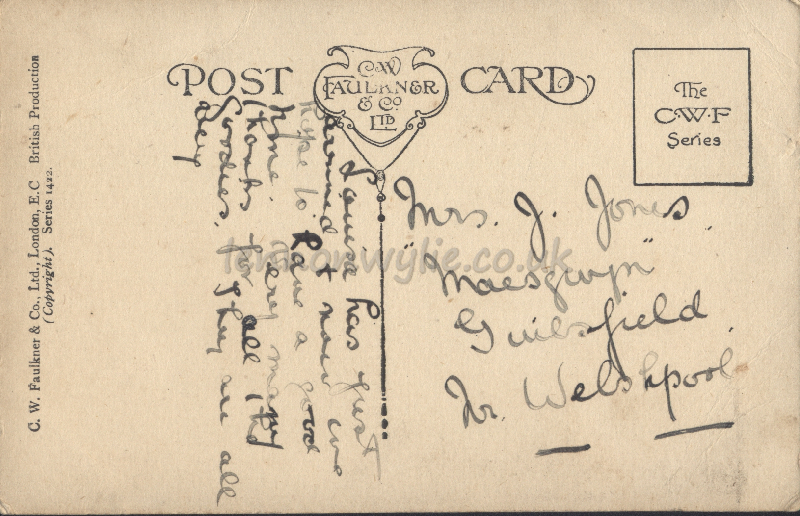 POST CARD
C.W.
FAULKNER
& Co.
LTD
The
C.W.F
Series
C. W. Faulkner & Co., Ltd., London, E.C British Production
(Copyright). Series 1422.
Louisa has just
arrived & now we
hope to have a good
time. Very many
thanks for all the
goodies, for they are all
very
Mrs. J. Jones
"Maesgwyn"
Guilsfield
Nr. Welshpool
lennonwylie.co.uk